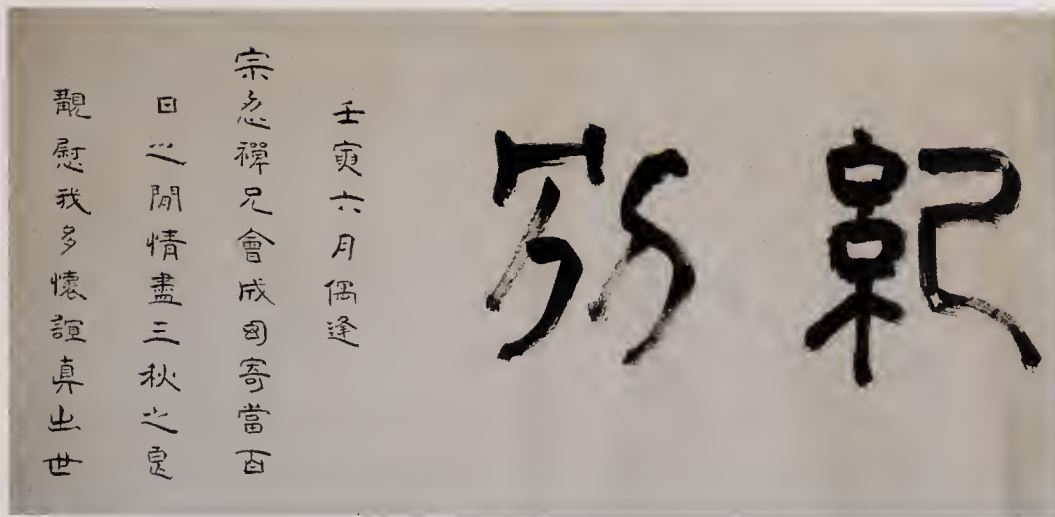 紀
壬寅六月偶逢
宗忍禪兄會成寄當百
日之閒情盡三秋之
慰我多懷誼真出世